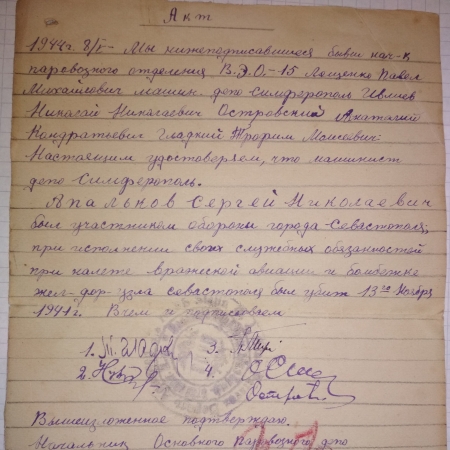 Акт
1944г. 8/V- Мы нижеподписавшиеся бывш нач-к
паровозного отделения В.Э.О.-15 Лощенко Павел
Михайлович машин. депо Симферополь Ивлиев
Николай Николаевич Островский Анатолий
Кондратьевич Гладкий Трофим Моисеевич
Настоящим удостоверяем, что машинист
депо Симферополь.
Апальков Сергей Николаевич
был участником обороны города-Севастополя;
при исполнении своих служебных обязанностей
при налете вражеской авиации и бомбежке
жел-дор-узла Севастополя был убит 13го Ноября
1941г. В чем и подписываем
1. 3.
2. 4.
Вышеизложенное подтверждаю.
Начальник Основного Паровозного депо